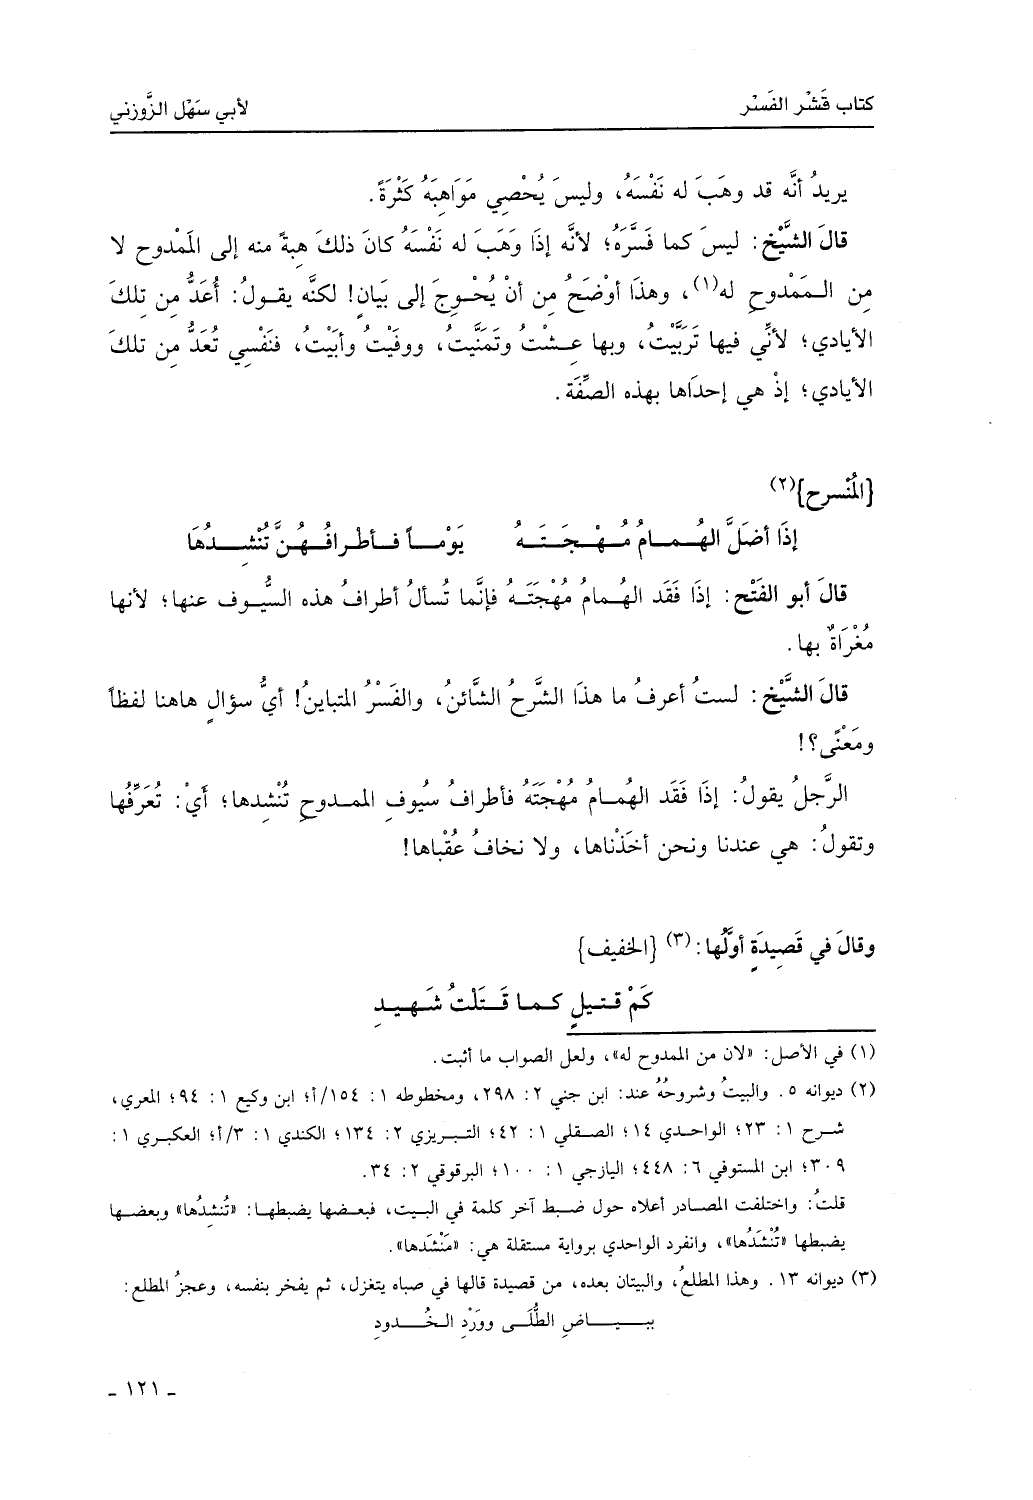 كتاب قَشْر الفَسْر
لأبي سَهْل الزَّوْزني
يريدُ أنَّه قد وهَبَ له نَفْسَهُ، وليسَ يُحْصِي مَوَاهِبَهُ كَثْرَةً.
قالَ الشَّيْخ: ليسَ كما فَسَّرَهُ؛ لأنَّه إذَا وَهَبَ له نَفْسَهُ كانَ ذلكَ هِبةً منه إلى المَمْدوح لا
مِن الـمَمْدوحِ له(١)، وهذَا أوْضَحُ مِن أنْ يُحْـوِجَ إلى بَيَانٍ! لكنَّه يقـولُ: أُعَدُّ مِن تلكَ
الأيادي؛ لأنِّي فيها تَرَبَّيْتُ، وبها عِـشْتُ وتَمَنَّيتُ، ووفَيْتُ وأبَيْتُ، فنَفْسِي تُعَدُّ مِن تلكَ
الأيادي؛ إذْ هي إحدَاها بهذه الصِّفَة.
{المُنْسرح}(٢)
إذَا أضَلَّ الهُـمـامُ مُـهْـجَـتَـهُ يَوْمـاً فـأطْرافُـهُـنَّ تُنْشِـدُهَا
قالَ أبو الفَتْح: إذَا فَقَد الهُـمامُ مُهْجَتَـهُ فإنَّما تُسألُ أطْرافُ هذه السُّيوف عنها؛ لأنها
مُغْرَاةٌ بها.
قالَ الشَّيْخ: لستُ أعرفُ ما هذَا الشَّرحُ الشَّائنُ، والفَسْرُ المتباينُ! أيُّ سؤالٍ هاهنا لفظاً
ومَعْنًى؟!
الرَّجلُ يقولُ: إذَا فَقَد الهُمـامُ مُهْجَتَهُ فأطرافُ سُيوفِ الممـدوحِ تُنْشِدها؛ أيْ: تُعَرِّفُها
وتقولُ: هي عندنا ونحن أخَذْناها، ولا نخافُ عُقْباها!
وقالَ في قَصِيدَةٍ أوَّلُها:(٣) {الخفيف}
كَمْ قـتـيلٍ كـمـا قَـتَلْتُ شَـهِـيـدِ
(١) في الأصل: «لان من الممدوح له»، ولعل الصواب ما أثبت.
(٢) ديوانه ٥. والبيتُ وشروحُهُ عند: ابن جني ٢: ٢٩٨، ومخطوطه ١: ١٥٤/أ؛ ابن وكيع ١: ٩٤؛ المعري،
شرح ١: ٢٣؛ الواحـدي ١٤؛ الصـقلي ١: ٤٢؛ التبـريزي ٢: ١٣٤؛ الكندي ١: ٣/أ؛ العكبري ١:
٣٠٩؛ ابن المستوفي ٦: ٤٤٨؛ اليازجي ١: ١٠٠؛ البرقوقي ٢: ٣٤.
قلتُ: واختلفت المصـادر أعلاه حول ضـبط آخر كلمة في البيـت، فبعـضها يضبطهـا: «تُنشِدُها» وبعضـها
يضبطها «تُنْشَدُها»، وانفرد الواحدي برواية مستقلة هي: «مَنْشَدَها».
(٣) ديوانه ١٣. وهذا المطلعُ، والبيتان بعده، من قصيدة قالها في صباه يتغزل، ثم يفخر بنفسه، وعجزُ المطلع:
ببيـــاضِ الطُّلَـى ووَرْدِ الـخُـــدودِ
- ١٢١ -